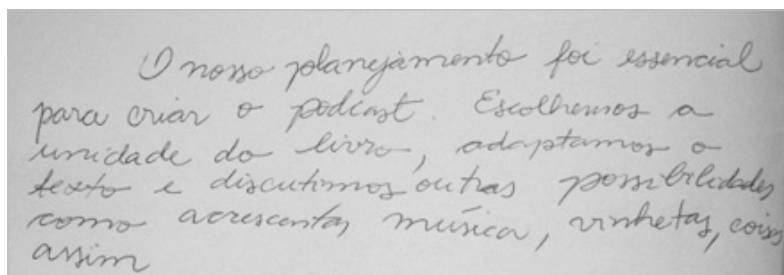 O nosso planejamento foi essencial
para criar o podcast. Escolhemos a
unidade do livro, adaptamos o
texto e discutimos outras possibilidades
como acrescentar música, vinhetas, coisas
assim